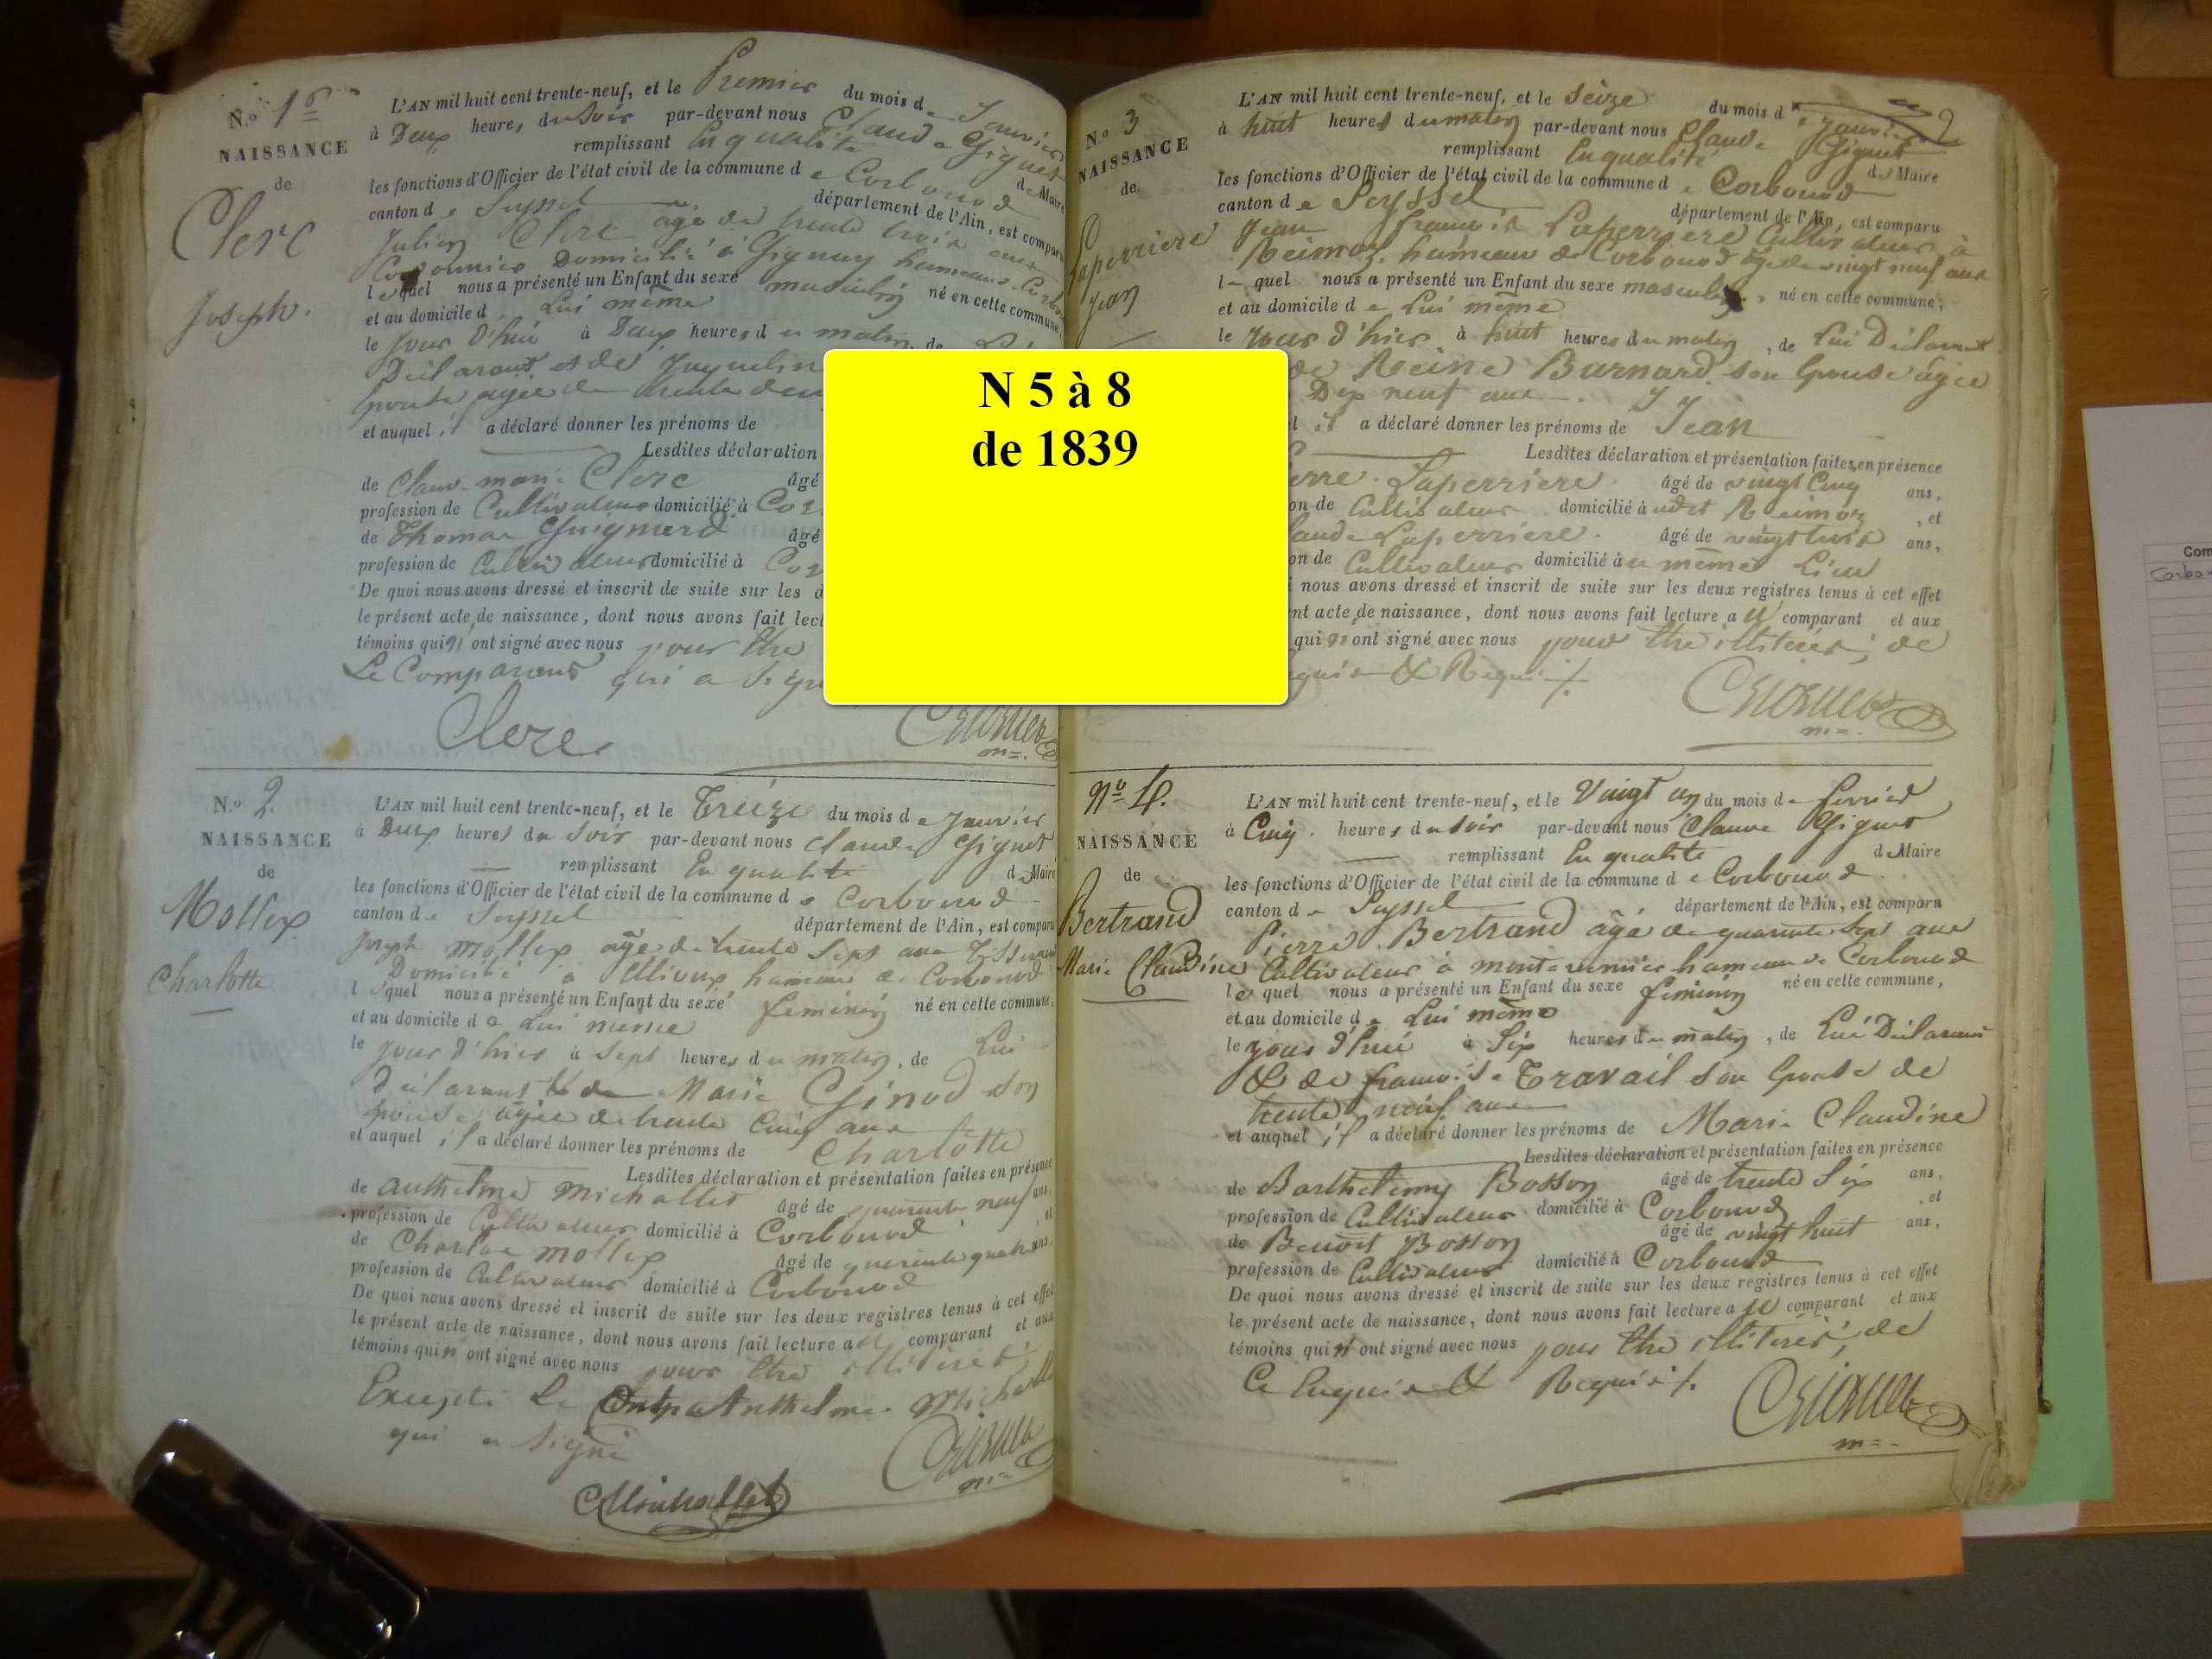 N.º 1er
NAISSANCE
de
Clerc
Joseph.
L'AN mil huit cent trente-neuf, et le Premier du mois de Janvier
à Deux heures du Soir par-devant nous Claude Gignet
remplissant En qualité de Maire
les fonctions d'Officier de l'état civil de la commune de Corbonod
canton de Seyssel département de l'Ain, est comparu
Julien Clerc agé de trente trois ans
Cordonnier Domicilié à Gignay hameau Corbo
lequel nous a présenté un Enfant du sexe masculin né en cette commune,
et au domicile de Lui même
le jour D'hui à Deux heures du matin, de
Déclarant et de Jaqueline
épouse agée de trente deux
et auquel il a déclaré donner les prénoms de
Lesdites déclaration
de Claude marie Clerc âgé
profession de Cultivateur domicilié à Cor
de Thomas Guignerd âgé
profession de Cultivateur domicilié à Cor
De quoi nous avons dressé et inscrit de suite sur les d
le présent acte de naissance, dont nous avons fait lect
témoins qui n'ont signé avec nous pour être
Le Comparant qui a signé
Clerc
N.º 2
NAISSANCE
de
Mollex
Charlotte
L'AN mil huit cent trente-neuf, et le Treize du mois de Janvier
à Deux heures du Soir par-devant nous Claude Gignet
remplissant En qualité de Maire
les fonctions d'Officier de l'état civil de la commune de Corbonod
canton de Seyssel département de l'Ain, est comparu
Joseph Mollex âgé de trente Sept ans
Domicilié à hameau de Corbonod
lequel nous a présenté un Enfant du sexe feminin né en cette commune,
et au domicile de Lui même
le jour d'hier à Sept heures du matin, de Lui
déclarant & de Marie Ginod son
épouse agée de trente Cinq ans
et auquel il a déclaré donner les prénoms de Charlotte
Lesdites déclaration et présentation faites en présence
de anthelme michallet âgé de quarante neuf ans,
profession de Cultivateur domicilié à Corbonod et
de Charles mollex âgé de quarante quatre ans,
profession de Cultivateur domicilié à Corbonod
De quoi nous avons dressé et inscrit de suite sur les deux registres tenus à cet effet
le présent acte de naissance, dont nous avons fait lecture au comparant et aux
témoins qui n'ont signé avec nous pour être illitéré,
Excepté Le Anthelme Michallet
qui a Signé
Michallet
N 5 à 8
de 1839
N.º 3
NAISSANCE
de
Laperriere
Jean
L'AN mil huit cent trente-neuf, et le Seize du mois de janvier
à huit heures du matin par-devant nous Claude Gignet
remplissant En qualité de Maire
les fonctions d'Officier de l'état civil de la commune de Corbonod
canton de Seyssel département de l'Ain, est comparu
Jean françois Laperriere Cultivateur à
Reimoz hameau de Corbonod âgé de vingt neuf ans
lequel nous a présenté un Enfant du sexe masculin, né en cette commune,
et au domicile de Lui même
le jour d'hier à huit heures du matin, de Lui Déclarant
de Reine Burnard son Epouse âgée
Dix neuf ans
il a déclaré donner les prénoms de Jean
Lesdites déclaration et présentation faites en présence
erre Laperriere âgé de vingt Cinq ans,
on de Cultivateur domicilié à udit Reimoz, et
laude Laperriere âgé de vingt trois ans,
on de Cultivateur domicilié au même Lieu
i nous avons dressé et inscrit de suite sur les deux registres tenus à cet effet
nt acte de naissance, dont nous avons fait lecture au comparant et aux
qui n'ont signé avec nous pour être illitérés, de
quis & Requis
Nº 4.
NAISSANCE
de
Bertrand
Marie Claudine
L'AN mil huit cent trente-neuf, et le Vingt un du mois de fevrier
à Cinq heures du Soir par-devant nous Claude Gignet
remplissant En qualité de Maire
les fonctions d'Officier de l'état civil de la commune de Corbonod
canton de Seyssel département de l'Ain, est comparu
Pierre Bertrand âgé de quarante Sept ans
Cultivateur à mont-vernier hameau de Corbonod
lequel nous a présenté un Enfant du sexe féminin né en cette commune,
et au domicile de Lui même
le jour d'hui à Six heures du matin, de Lui Déclarant
& de françoise Travail son Epouse de
trente neuf ans
et auquel il a déclaré donner les prénoms de Marie Claudine
Lesdites déclaration et présentation faites en présence
de Barthelemy Bosson âgé de trente Six ans,
profession de Cultivateur domicilié à Corbonod, et
de Benoit Bosson âgé de vingt huit ans,
profession de Cultivateur domicilié à Corbonod
De quoi nous avons dressé et inscrit de suite sur les deux registres tenus à cet effet
le présent acte de naissance, dont nous avons fait lecture au comparant et aux
témoins qui n'ont signé avec nous pour être illitérés, de
Ce Enquis & Requis